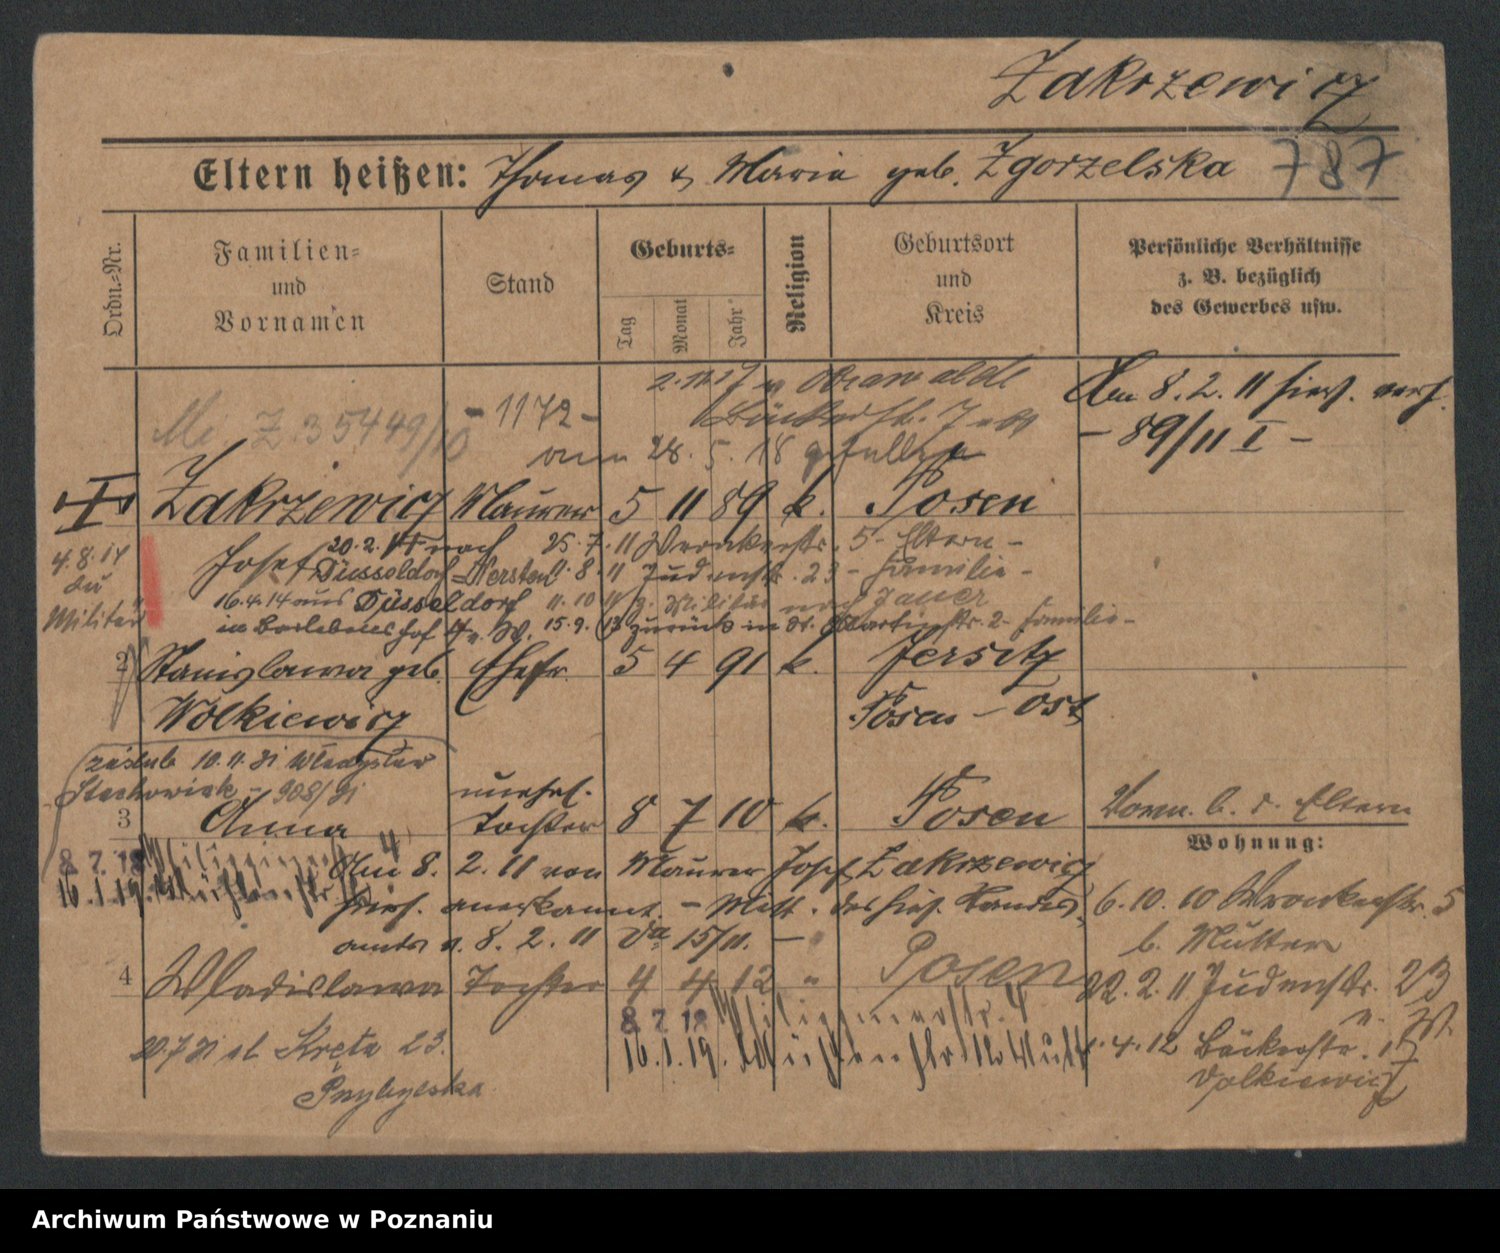 Zakrzewicz
Eltern heißen: Thomas & Maria geb. Zgorzelska 787
Ordn.-Nr.
Familien-
und
Vornamen
Stand
Geburts-
Tag
Monat
Jahr
Religion
Geburtsort
und
Kreis
Persönliche Verhältnisse
z. B. bezüglich
des Gewerbes usw.
Am 8. 2. 11 hier. verh.
- 89/11 I -
- 1172 -
Z. 35449/10
am 28. 5. 18 gefallen
Zakrzewicz Maurer 5 11 89 k. Posen
4.8.14
zu
Militär
Josef 20.2.14 nach 25.7.11 Wronkerstr. 5 - Eltern -
Düsseldorf - 8. 11 Judenstr. 23 - Familie -
16.4.14 aus Düsseldorf 11.10.11 z. Militär nach Jauer
15.9.13 zurück in St. Martinstr. 2 - Familie -
2 Stanislawa geb. Ehefr. 5 4 91 k. Jersitz
Wolkiewicz Posen - Ost
10.11.21
Stachowiak - 908/21
unehel.
3 Anna Tochter 8 7 10 k. Posen
Vorm. b. d. Eltern
Wohnung:
8.7.18
16.1.19.
Am 8. 2. 11 von Maurer Josef Zakrzewicz
hier. anerkannt. - Mitt. des hies. Standes-
amts v. 8. 2. 11 15/11. -
6. 10. 10 Wronkerstr. 5
b. Mutter
22. 2. 11 Judenstr. 23
4 Wladislawa Tochter 4 4 12 " Posen
8.7.18
16.1.19.
20.7.21 ul. Kręta 23.
4.12 Bäckerstr. 17
Wolkiewicz
Archiwum Państwowe w Poznaniu